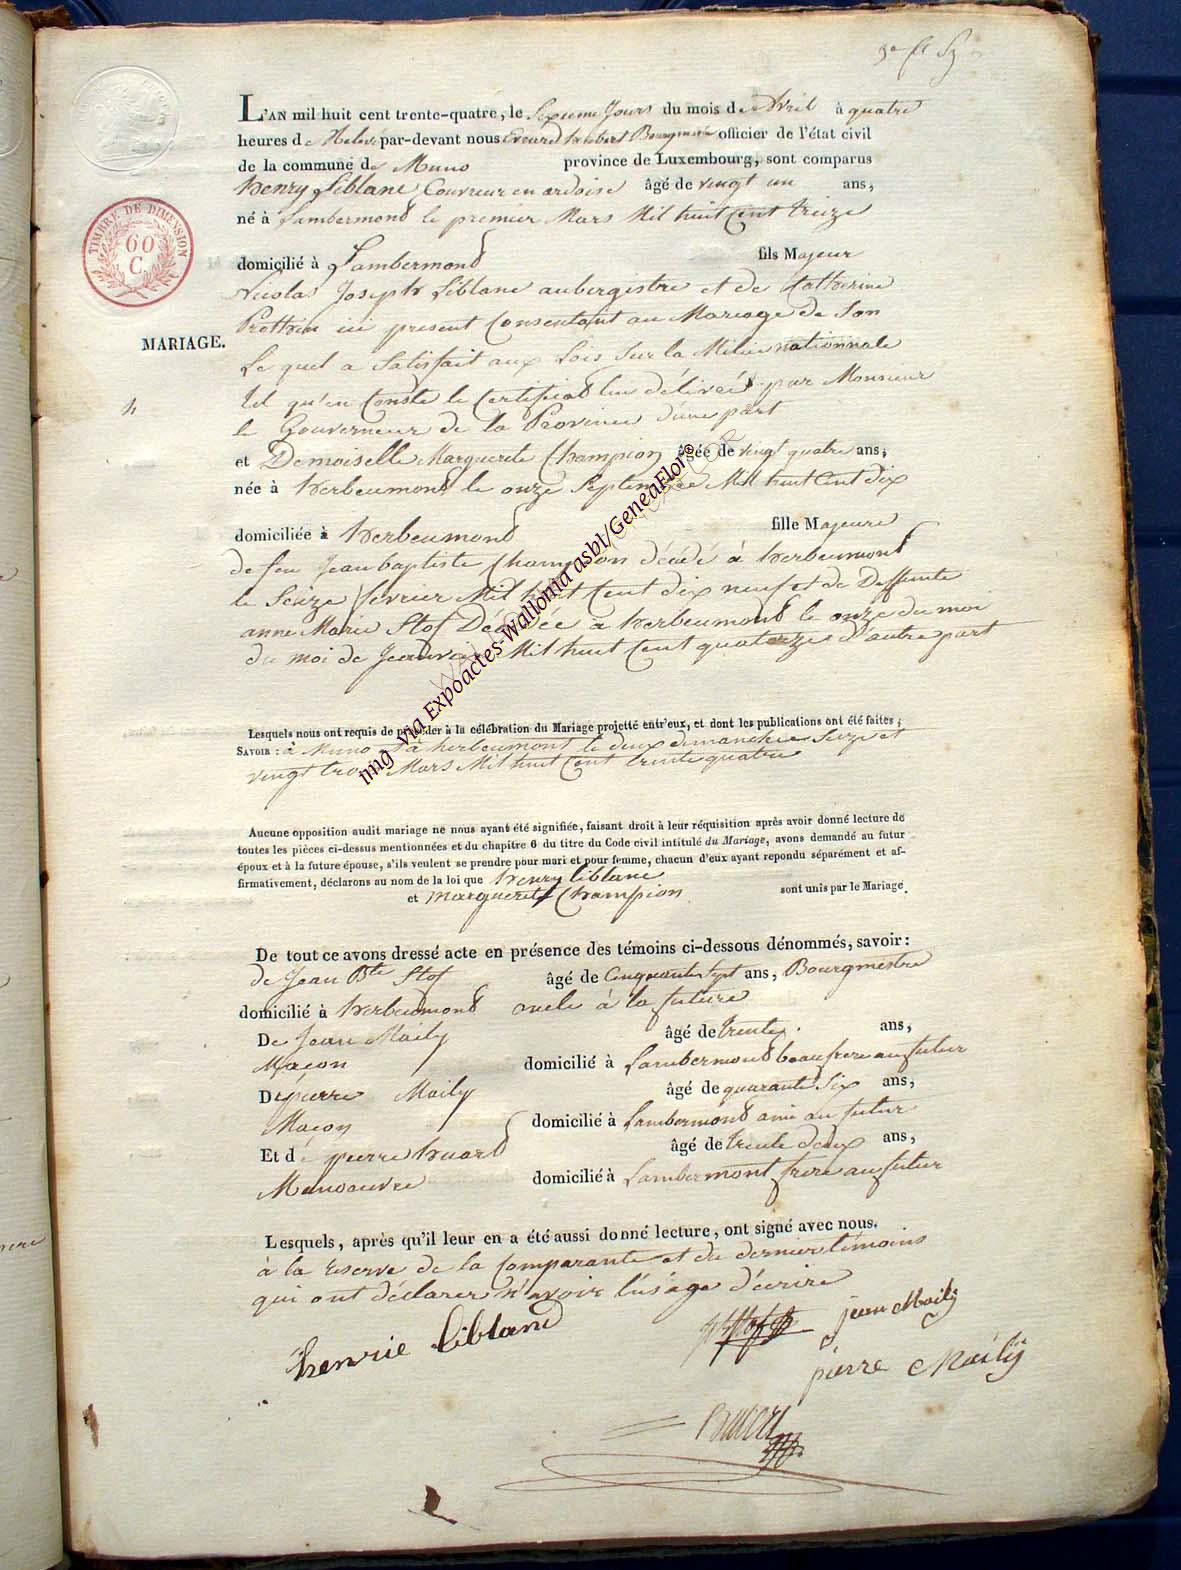 L'AN mil huit cent trente-quatre, le Sixieme Jours du mois de Avril à quatre
heures de Relevé par-devant nous Hubert Bourgmestre officier de l'état civil
de la commune de Muno province de Luxembourg, sont comparus
Henry Liblanc Couvreur en ardoise âgé de vingt un ans,
né à Lambermond le premier Mars Mil huit Cent treize
TIMBRE DE DIMENSION
60
C.
domicilié à Lambermond fils Majeur
Nicolas Joseph Liblanc aubergistre et de Catherine
ici present Consentant au Mariage de Son
MARIAGE.
Le quel a Satisfait aux Lois Sur la Milice nationnale
tel qu'en Conste le Certificad lui délivré par Monsieur
le Gouverneur de la Province d'une part
et Demoiselle Marguerite Champion âgée de vingt quatre ans,
née à Herbeumond le onze Septembre Mil huit Cent dix
domiciliée à Herbeumond fille Majeure
de feu Jean baptiste Champion décédé à Herbeumont
le Seize fevrier Mil huit Cent dix neuf et de Deffunte
anne Marie Stof Décédée a herbeumond le onze du moi
du moi de Mil huit Cent quatorze d'autre part
img via Expoactes-Wallonia asbl/GeneaFlor©
Lesquels nous ont requis de procéder à la célébration du Mariage projetté entr'eux, et dont les publications ont été faites;
SAVOIR : à Muno à herbeumont le deux dimanche Seize et
vingt trois Mars Mil huit Cent trente quatre
Aucune opposition audit mariage ne nous ayant été signifiée, faisant droit à leur réquisition après avoir donné lecture de
toutes les pièces ci-dessus mentionnées et du chapitre 6 du titre du Code civil intitulé du Mariage, avons demandé au futur
époux et à la future épouse, s'ils veulent se prendre pour mari et pour femme, chacun d'eux ayant repondu séparément et af-
firmativement, déclarons au nom de la loi que Henry liblanc
et Marguerite Champion sont unis par le Mariage.
De tout ce avons dressé acte en présence des témoins ci-dessous dénommés, savoir:
de Jean Bte Stof âgé de Cinquante Sept ans, Bourgmestre
domicilié à herbeumond oncle à la future
De Jean Maily âgé de trente ans,
Maçon domicilié à Lambermond beaufrere au futur
De pierre Maily âgé de quarante Six ans,
Maçon domicilié à Lambermond ami au futur
Et dé pierre huard âgé de trente deux ans,
Manoeuvre domicilié à Lambermont frere au futur
Lesquels, après qu'il leur en a été aussi donné lecture, ont signé avec nous.
à la reserve de la Comparante et du dernier témoins
qui ont déclarer n'avoir l'usage d'écrire
henrie liblanc
jean Maily
pierre Maily